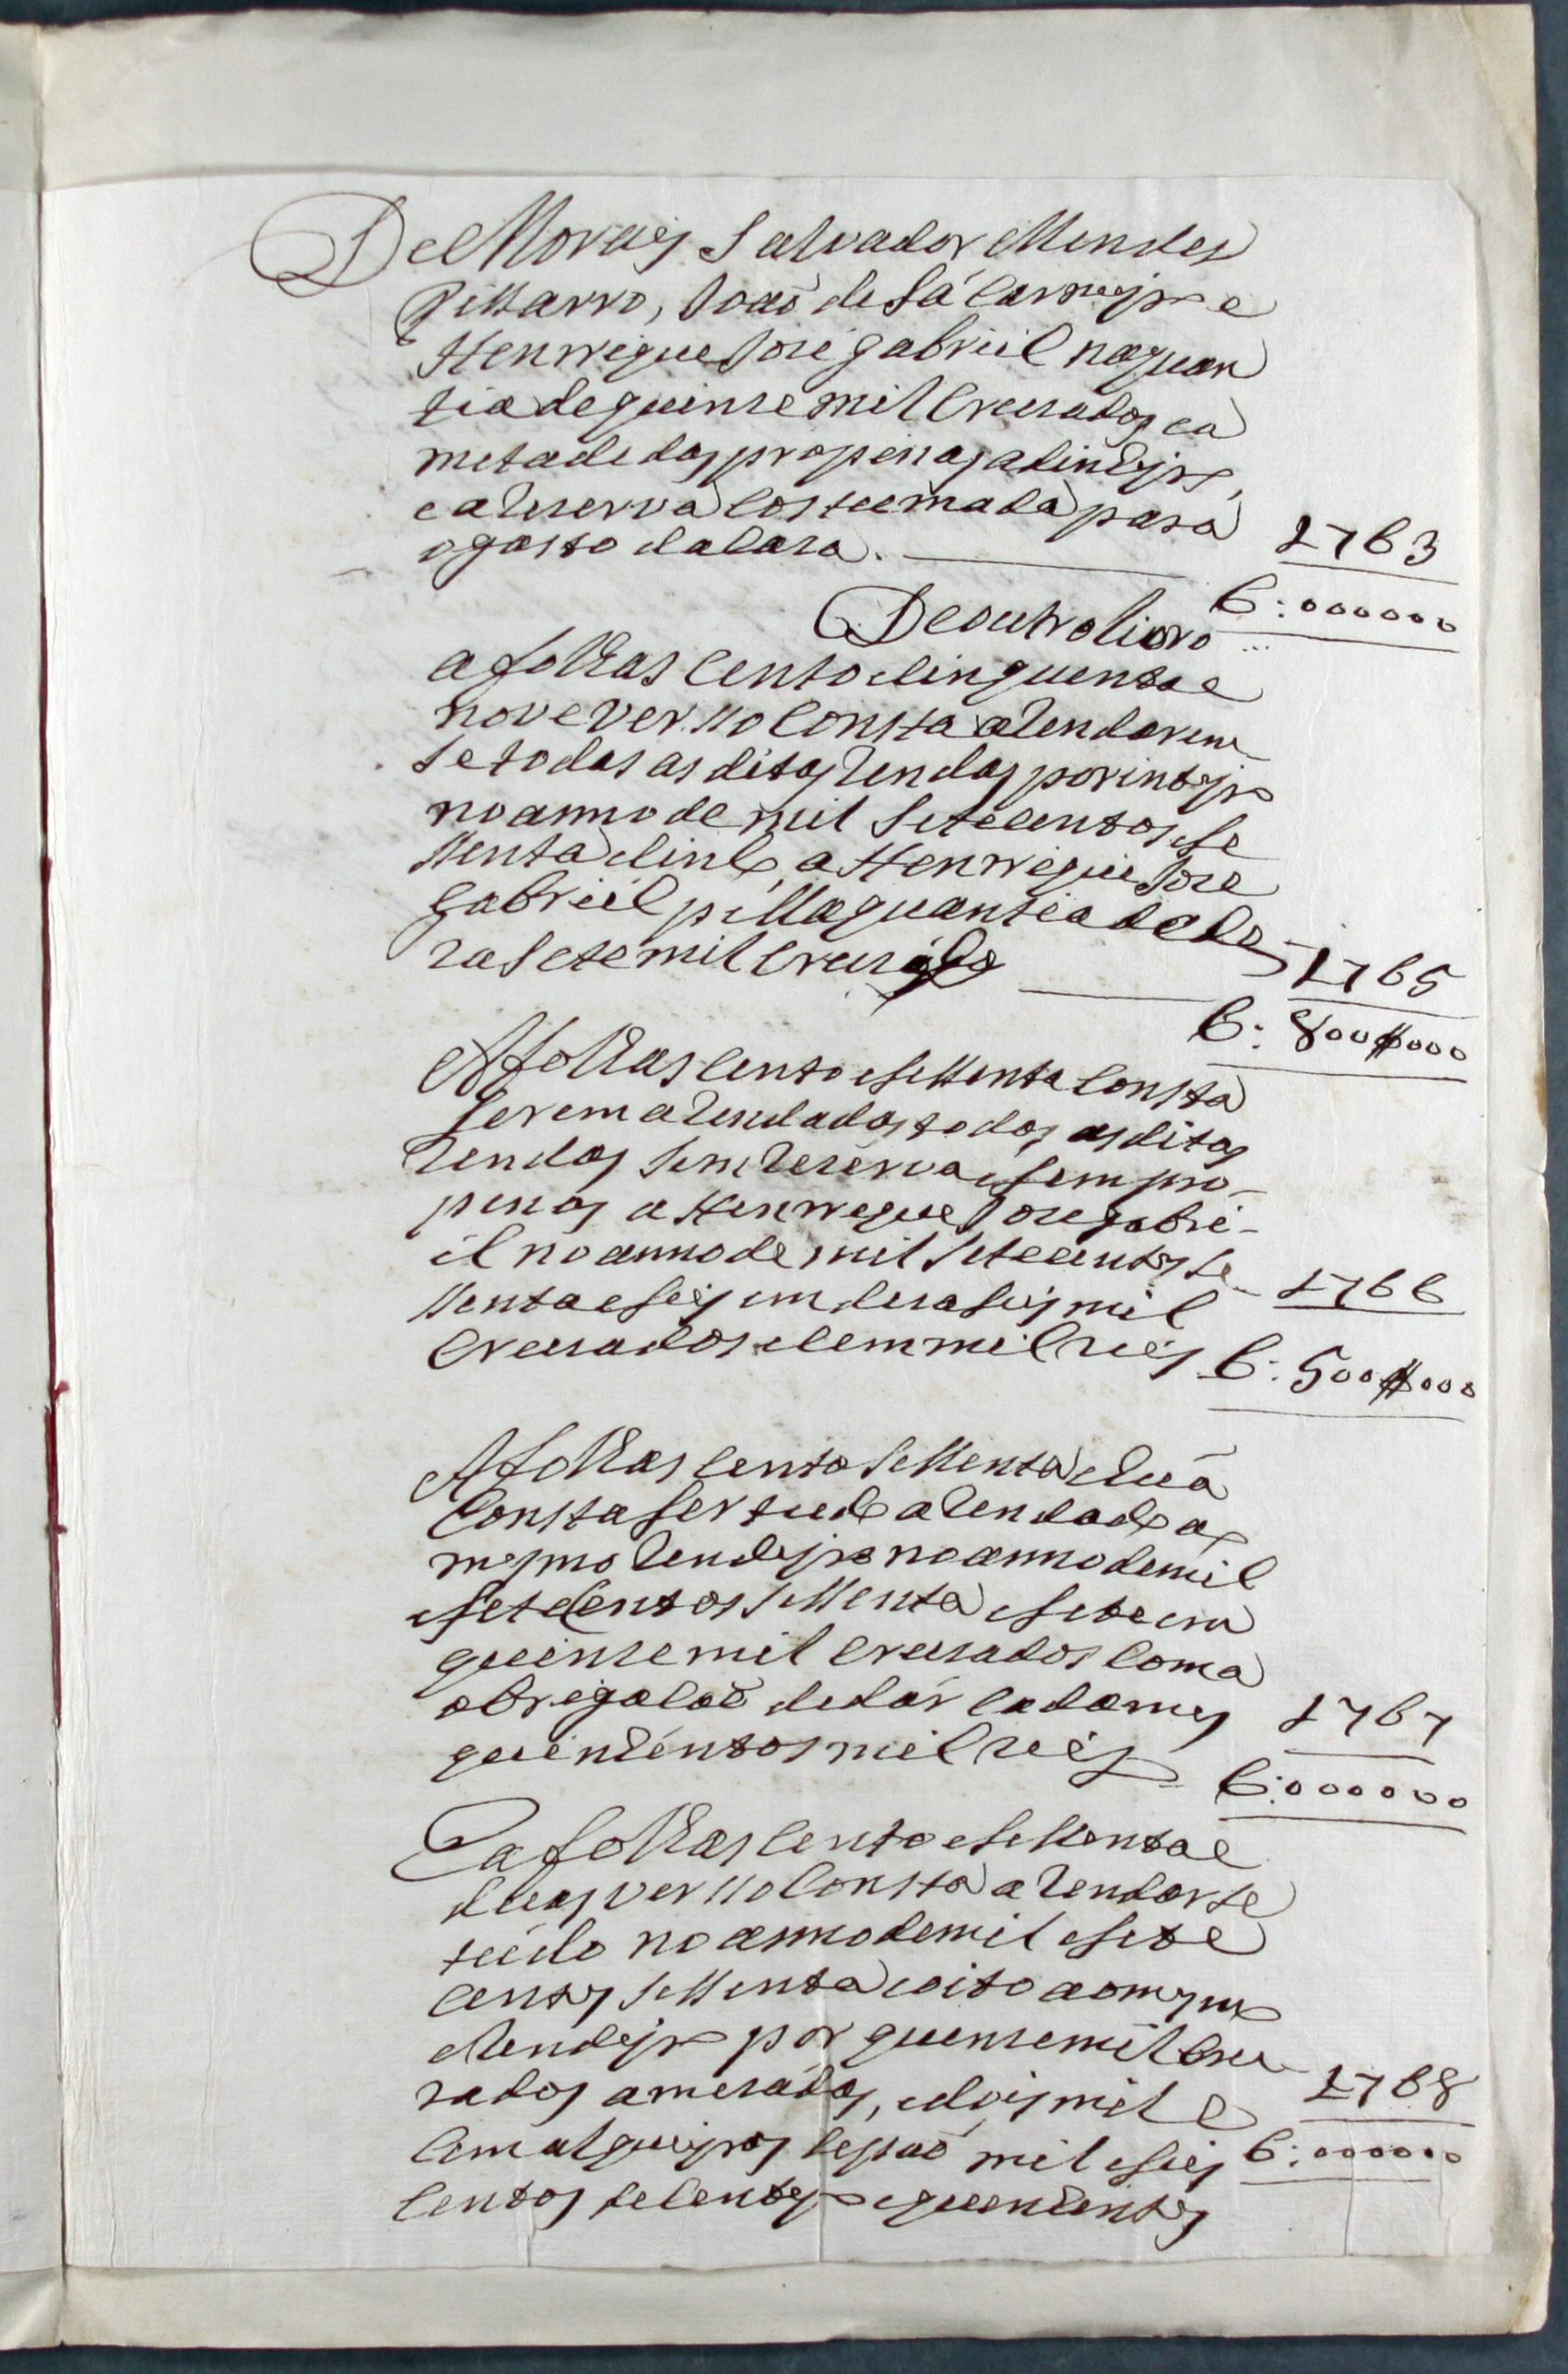 De Moraiz Salvador Mendes
Pissarro, Joaõ de Sá Carneyro e
Henrrique Jozé gabriil naquan
tia dequinze mil Cruzados ea
metade das propinas adinhr.o,
ea Rezerva Costumada para
ogasto dacaza. 1763
6:000000
De outro livro
afolhas Cento e Cinquenta e
nove verso Consta aRendarem
se todas as ditas Rendas por inteyro
no anno de mil Setecentos e se
ssenta e Cinco, a Henrrique Joze
gabriil pella quantia de de
zasete mil Cruzados 1765
6:800$000
Afolhas Cento e sessenta Consta
serem aRendadas todas as ditas
Rendas sem Rezerva e sem pro-
pinas a Henrrique Joze gabri-
il no anno de mil Setecentos se
ssenta e seis em dezaseis mil 1766
Cruzados e Cem mil reis 6:500$000
Afolhas Cento Sessenta e huã
Consta ser tudo aRendado ao
mesmo Rendeyro no anno de mil
e setecentos sessenta e sete em
quinze mil Cruzados Com a
obrigacaõ de dar cada mes 1767
quinhentos mil reis 6:000000
E afolhas Cento e sessenta e
duas verso Consta aRendarse
tudo no anno de mil e sete
centos sessenta e oito ao mesmo
Rendeyro por quinze mil Cru
zados amezados, e dois mil e 1768
Cem alqueyres de paõ mil e seis 6:000000
Centos de Centeyo e quinhentos